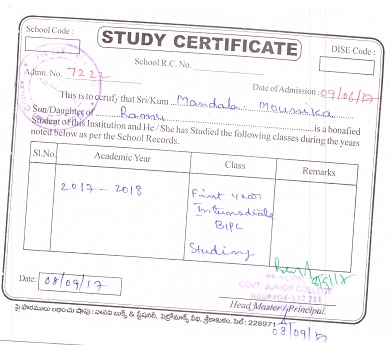 School Code :
STUDY CERTIFICATE
DISE Code :
School R.C. No.
Admn. No. 7222
Date of Admission : 09/06/17
This is to certify that Sri/Kum Mandala Mounika
Son/Daughter of Ramu is a bonafied
Student of this Institution and He / She has Studied the following classes during the years
noted below as per the School Records.
Sl.No. Academic Year Class Remarks
2017 - 2018 First year
Intermediate
BIPC
Studing
GOVT. JUNIOR COLLEGE
NAUPADA-532 211
Date: 08/09/17
Head Master / Principal.
08/09/17
పై ఫారములు లభించు షాపు : వాసవి బుక్స్ & స్టేషనరీ, పెద్రోమాక్స్ వీధి, శ్రీకాకుళం, సెల్ : 228971